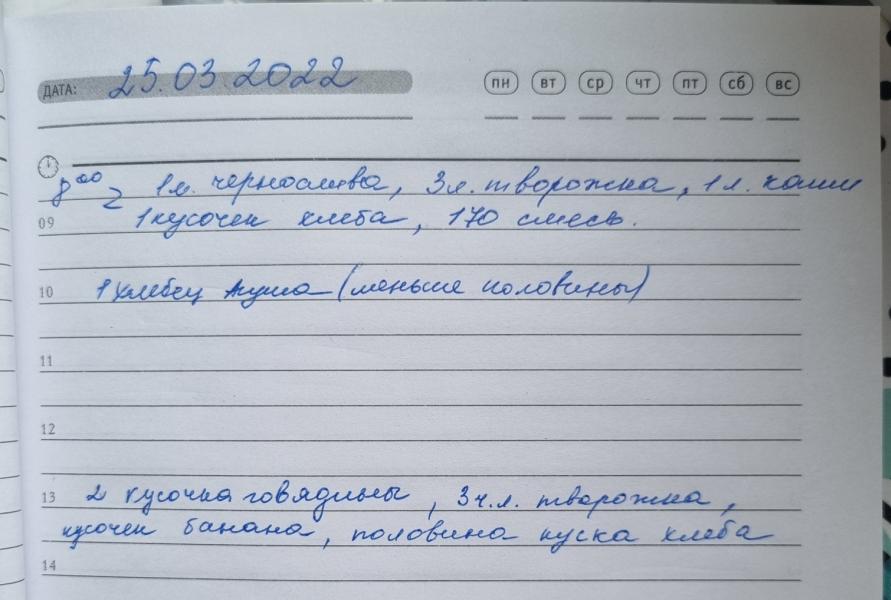 ДАТА: 25.03.2022 пн вт ср чт пт сб вс
8⁰⁰ 1л. чернослива, 3л. творожка, 1 л. каши
09 1 кусочек хлеба, 170 смесь.
10 1 хлебец (меньше половины)
11
12
13 2 кусочка говядины, 3 ч.л. творожка,
кусочек банана, половина куска хлеба
14